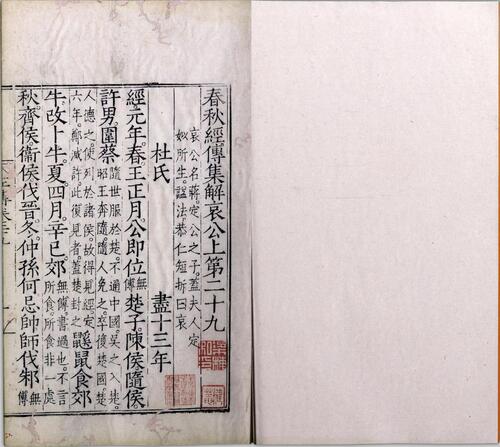 春秋經傳集解哀公上第二十九
哀公名蔣。定公之子。蓋夫人定
姒所生。謚法。恭仁短折曰哀
杜氏 盡十三年
經元年。春王正月。公即位無傳楚子。陳侯。隨侯。
許男。圍蔡隨世服於楚。不通中國。吳之入楚。昭王奔隨。隨人免之。卒復楚國。楚
人德之。使列於諸侯。故得見經。定六年。鄭滅許。此復見者。蓋楚封之鼷鼠食郊
牛。改卜牛。夏。四月。辛巳。郊無傳。書過也。不言所食。所食非一處
秋。齊侯。衛侯。伐晉。冬。仲孫何忌帥師伐邾無傳